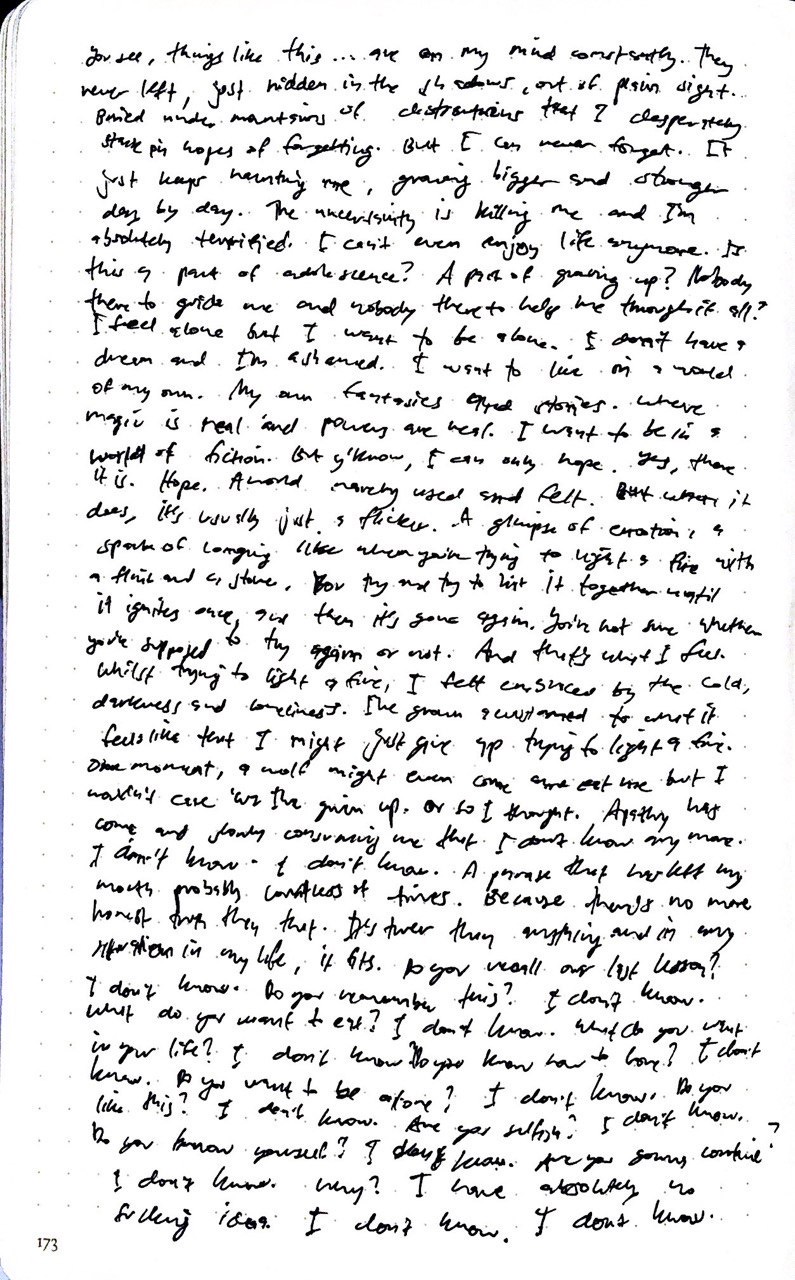 You see, things like this... are on my mind constantly. They
never left, just hidden in the shadows, out of plain sight.
Buried under mountains of distractions that I desperately
stack in hopes of forgetting. But I can never forget. It
just keeps haunting me, growing bigger and stronger
day by day. The uncertainty is killing me and I'm
absolutely terrified. I can't even enjoy life anymore. Is
this a part of adolescence? A part of growing up? Nobody
there to guide me and nobody there to help me through it all?
I feel alone but I want to be alone. I don't have a
dream and I'm ashamed. I want to live in a world
of my own. My own fantasies and stories. Where
magic is real and powers are real. I want to be in a
world of fiction. But y'know, I can only hope. Yes, there
it is. Hope. A word rarely used and felt. But when it
does, it's usually just a flicker. A glimpse of emotion, a
spark of longing like when you're trying to light a fire with
a flint and a stone. You try and try to hit it together until
it ignites once, and then it's gone again. You're not sure whether
you're supposed to try again or not. And that's what I feel.
Whilst trying to light a fire, I felt embraced by the cold,
darkness and loneliness. I've grown accustomed to what it
feels like that I might just give up trying to light a fire.
One moment, a wolf might even come and eat me but I
wouldn't care 'cus I've given up. Or so I thought. Apathy has
come and slowly consuming me that I don't know any more.
I don't know. I don't know. A phrase that has left my
mouth probably countless of times. Because there's no more
honest truth than that. It's truer than anything and in any
situation in my life, it fits. Do you recall our last lesson?
I don't know. Do you remember this? I don't know.
What do you want to eat? I don't know. What do you want
in your life? I don't know. Do you know how to love? I don't
know. Do you want to be alone? I don't know. Do you
like this? I don't know. Are you selfish? I don't know.
Do you know yourself? I don't know. Are you gonna continue?
I don't know. Why? I have absolutely no
fucking idea. I don't know. I don't know.
173